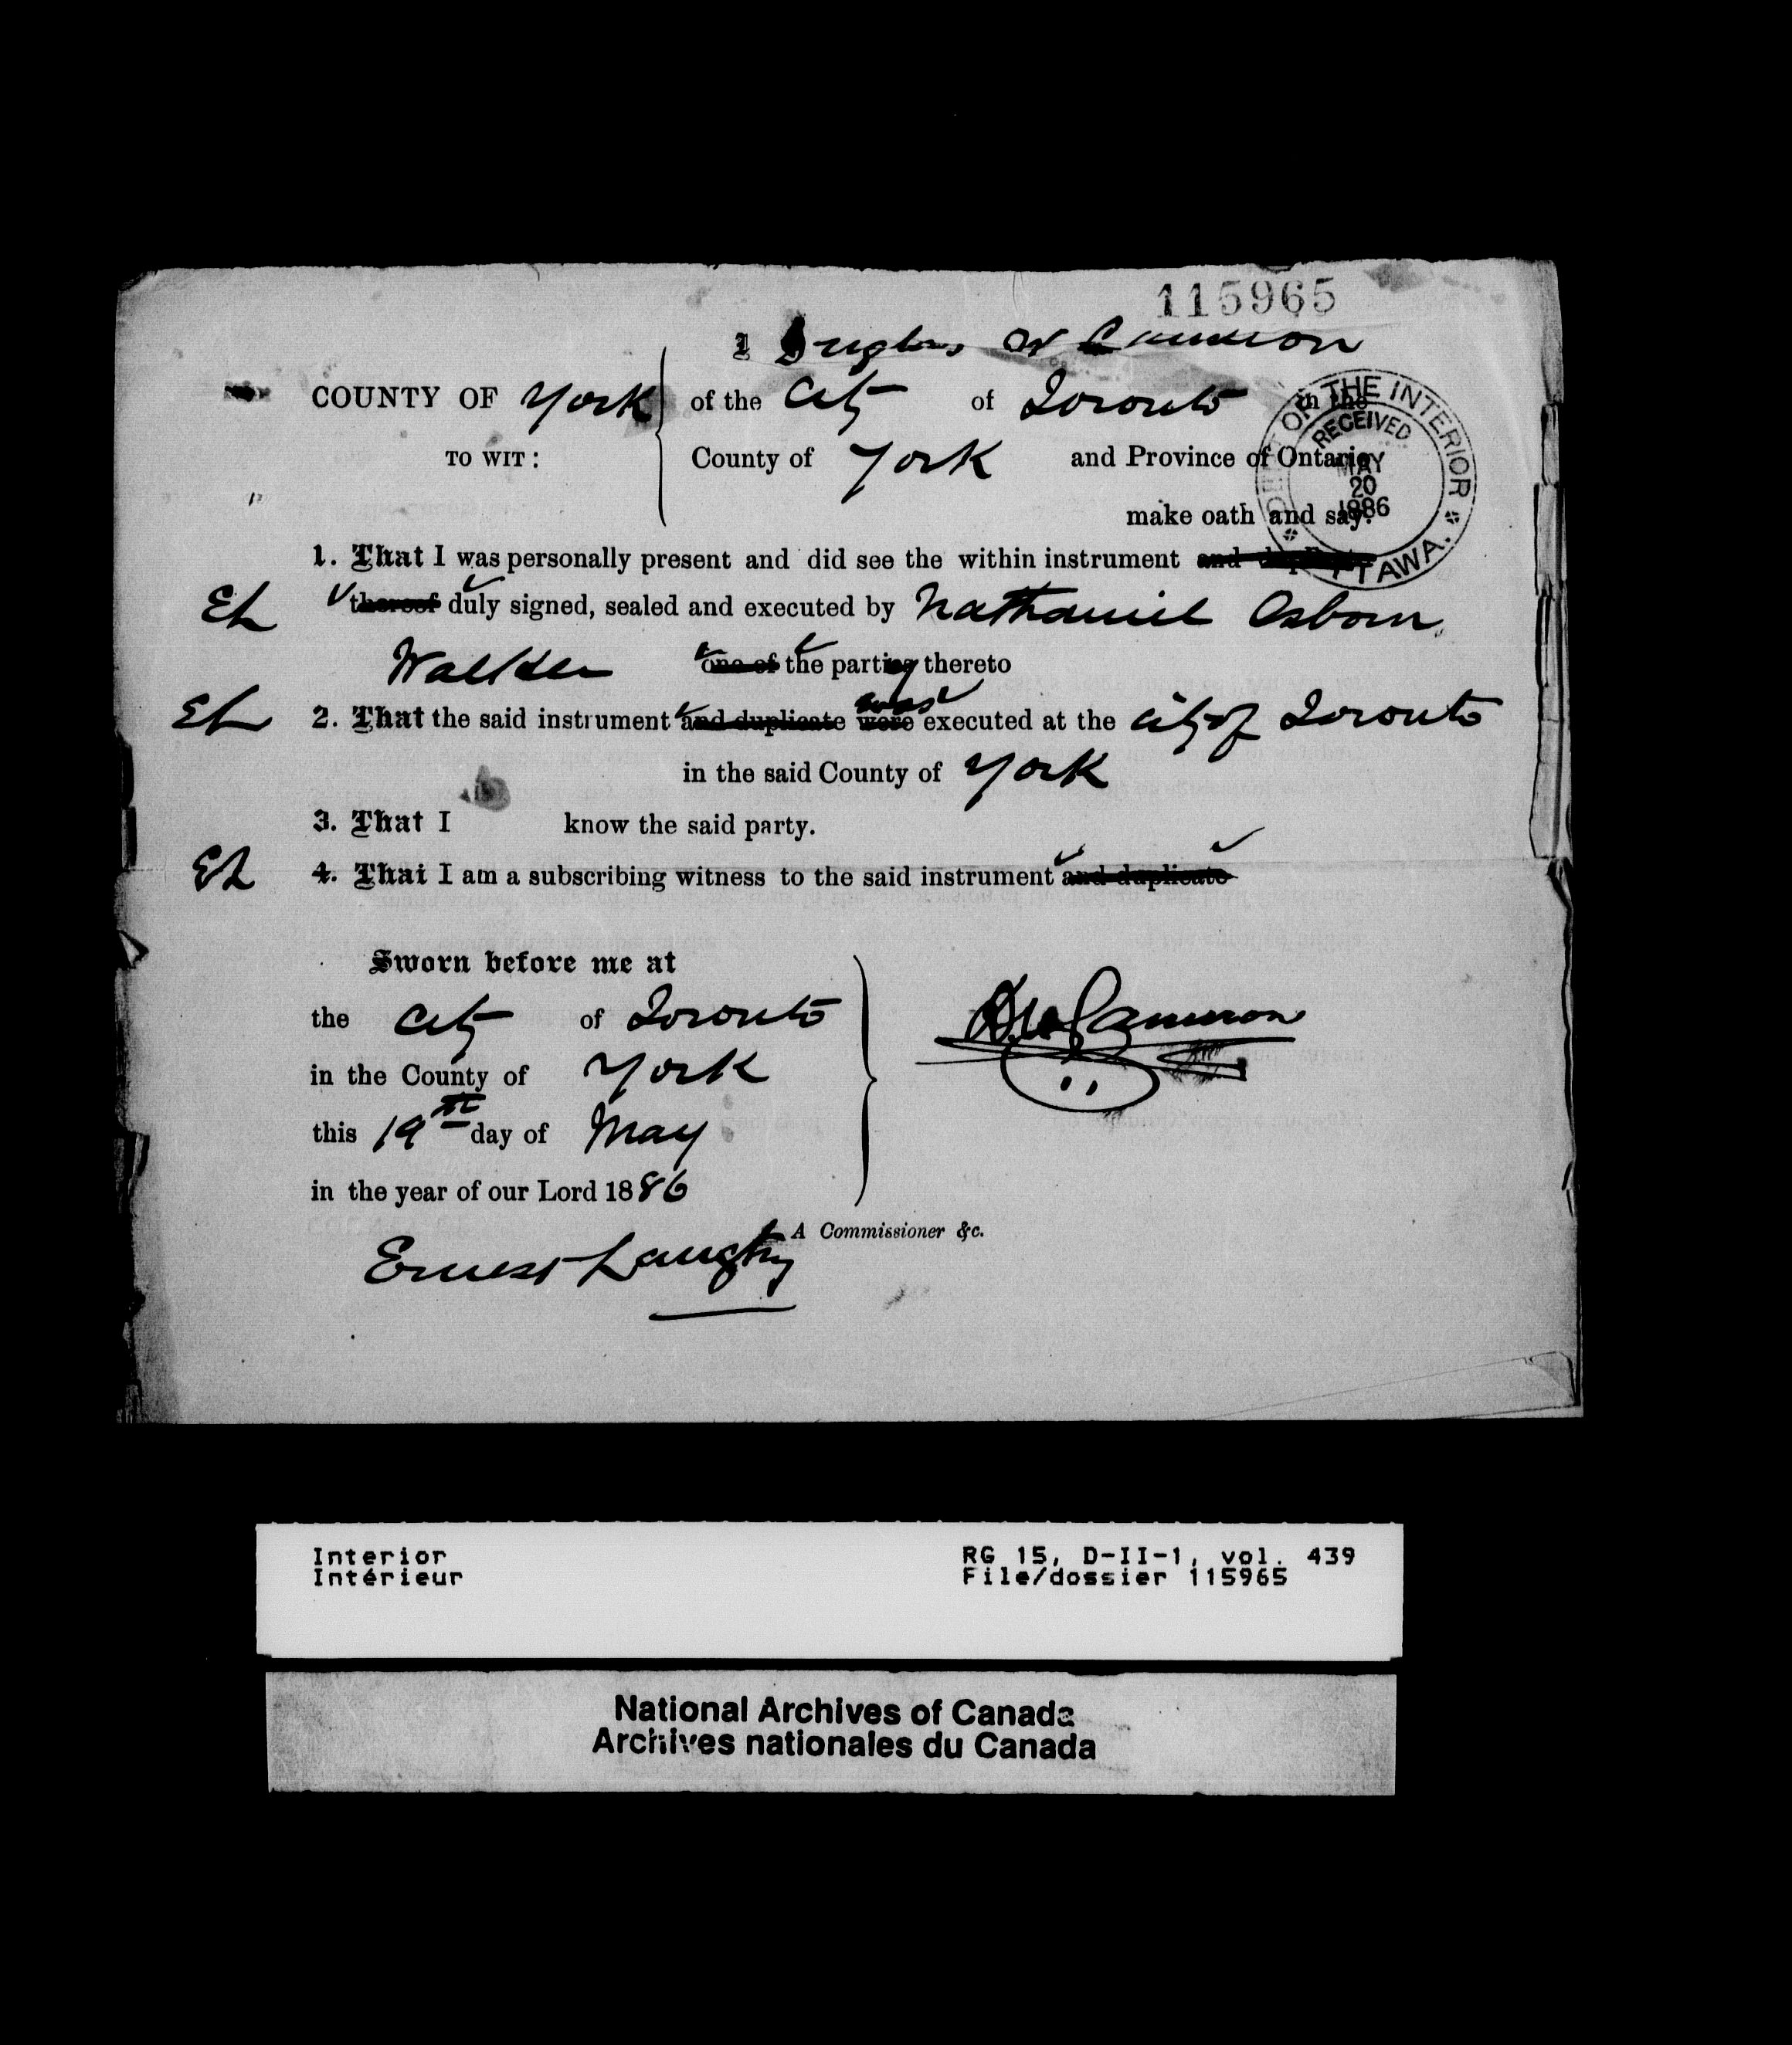 115965
I Douglas W Cameron
COUNTY OF York of the City of Toronto in the
TO WIT: County of York and Province of Ontario
make oath and say:
DEPT OF THE INTERIOR
RECEIVED
MAY
20
1886
OTTAWA.
1. That I was personally present and did see the within instrument and duplicate
EL thereof duly signed, sealed and executed by Nathaniel Osborn
Walker one of the party thereto
was
EL 2. That the said instrument and duplicate were executed at the City of Toronto
in the said County of York
3. That I know the said party.
EL 4. That I am a subscribing witness to the said instrument and duplicate
Sworn before me at
the City of Toronto
in the County of York
this 19th day of May
in the year of our Lord 1886
D.W. Cameron
A Commissioner &c.
Ernest Langtry
Interior
Intérieur
RG 15, D-II-1, vol. 439
File/dossier 115965
National Archives of Canada
Archives nationales du Canada